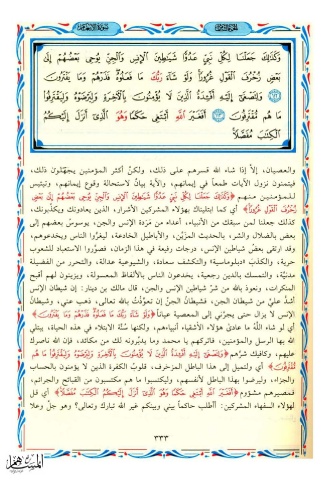 وَكَذَٰلِكَ جَعَلْنَا لِكُلِّ نَبِيٍّ عَدُوًّا شَيَاطِينَ الْإِنسِ وَالْجِنِّ يُوحِي بَعْضُهُمْ إِلَىٰ
بَعْضٍ زُخْرُفَ الْقَوْلِ غُرُورًا وَلَوْ شَاءَ رَبُّكَ مَا فَعَلُوهُ فَذَرْهُمْ وَمَا يَفْتَرُونَ
﴿١١٢﴾ وَلِتَصْغَىٰ إِلَيْهِ أَفْئِدَةُ الَّذِينَ لَا يُؤْمِنُونَ بِالْآخِرَةِ وَلِيَرْضَوْهُ وَلِيَقْتَرِفُوا
مَا هُم مُّقْتَرِفُونَ ﴿١١٣﴾ أَفَغَيْرَ اللَّهِ أَبْتَغِي حَكَمًا وَهُوَ الَّذِي أَنزَلَ إِلَيْكُمُ
الْكِتَابَ مُفَصَّلًا
والعصيان، إلّا إذا شاء الله قسرهم على ذلك، ولكنّ أكثر المؤمنين يجهّلون ذلك،
فيتمنون نزول الآيات طمعاً في إيمانهم، والآية بيانٌ لاستحالة وقوع إيمانهم، وتيئيس
للمؤمنين منهم ﴿وَكَذَٰلِكَ جَعَلْنَا لِكُلِّ نَبِيٍّ عَدُوًّا شَيَاطِينَ الْإِنسِ وَالْجِنِّ يُوحِي بَعْضُهُمْ إِلَىٰ بَعْضٍ
زُخْرُفَ الْقَوْلِ غُرُورًا﴾ أي كما ابتليناك بهؤلاء المشركين الأشرار، الذين يعادونك ويكذّبونك،
كذلك جعلنا لمن سبقك من الأنبياء، أعداء من مَرَدَة الإنس والجن، يوسوس بعضهم إلى
بعض بالضلال والشر، بالحديث المزيّن، والأباطيل الخادعة، ليغرّوا الناس ويخدعوهم،
وقد ارتقى بعضُ شياطين الإنس، درجات رفيعة في هذا الزمان، فصيّروا الاستعباد للشعوب
حرية، والكذب «دبلوماسية» والتكشف سعادة، والشيوعية عدالة، والتحرر من الفضيلة
مدنيّة، والتمسك بالدين رجعية، يخدعون الناس بالألفاظ المعسولة، ويزينون لهم أقبح
المنكرات، ونعوذ بالله من شرّ شياطين الإنس والجن، قال مالك بن دينار: إن شيطان الإنس
أشدُّ عليَّ من شيطان الجن، فشيطانُ الجنّ إن تعوَّذتُ بالله تعالى، ذهب عني، وشيطانُ
الإنس لا يزال حتى يجرَّني إلى المعصية عياناً ﴿وَلَوْ شَاءَ رَبُّكَ مَا فَعَلُوهُ فَذَرْهُمْ وَمَا يَفْتَرُونَ﴾
أي لو شاء اللّهُ ما عادَى هؤلاء الأشقياء أنبياءهم، ولكنها سُنَّة الابتلاء في هذه الحياة، يبتلي
الله بها الرسل والمؤمنين، فاتركهم يا محمد وما يدبّرونه لك من مكائد، فإن الله ناصرك
عليهم، وكافيك شرّهم ﴿وَلِتَصْغَىٰ إِلَيْهِ أَفْئِدَةُ الَّذِينَ لَا يُؤْمِنُونَ بِالْآخِرَةِ وَلِيَرْضَوْهُ وَلِيَقْتَرِفُوا مَا هُم
مُّقْتَرِفُونَ﴾ أي ولتميل إلى هذا الباطل المزخرف، قلوبُ الكفرة الذين لا يؤمنون بالحساب
والجزاء، وليرضوا بهذا الباطل لأنفسهم، وليكتسبوا ما هم مكتسبون من القبائح والجرائم،
فمصيرهم مشؤوم ﴿أَفَغَيْرَ اللَّهِ أَبْتَغِي حَكَمًا وَهُوَ الَّذِي أَنزَلَ إِلَيْكُمُ الْكِتَابَ مُفَصَّلًا﴾ أي قل
لهؤلاء السفهاء المشركين: أأطلب حاكماً بيني وبينكم غير الله تبارك وتعالى؟ وهو جلَّ وعلا
٣٣٣